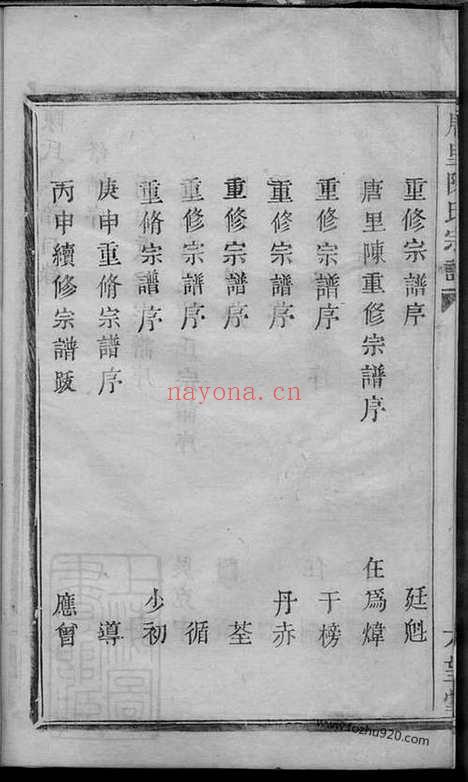 唐里陳氏宗譜
重修宗譜序 廷魁
唐里陳重修宗譜序 任為煒
重修宗譜序 于榜
重修宗譜序 丹赤
重修宗譜序 荃
重修宗譜序 循
重脩宗譜序 少初
庚申重脩宗譜序 導
丙申續修宗譜跋 應曾
nayona.cn
www.fozhu920.com